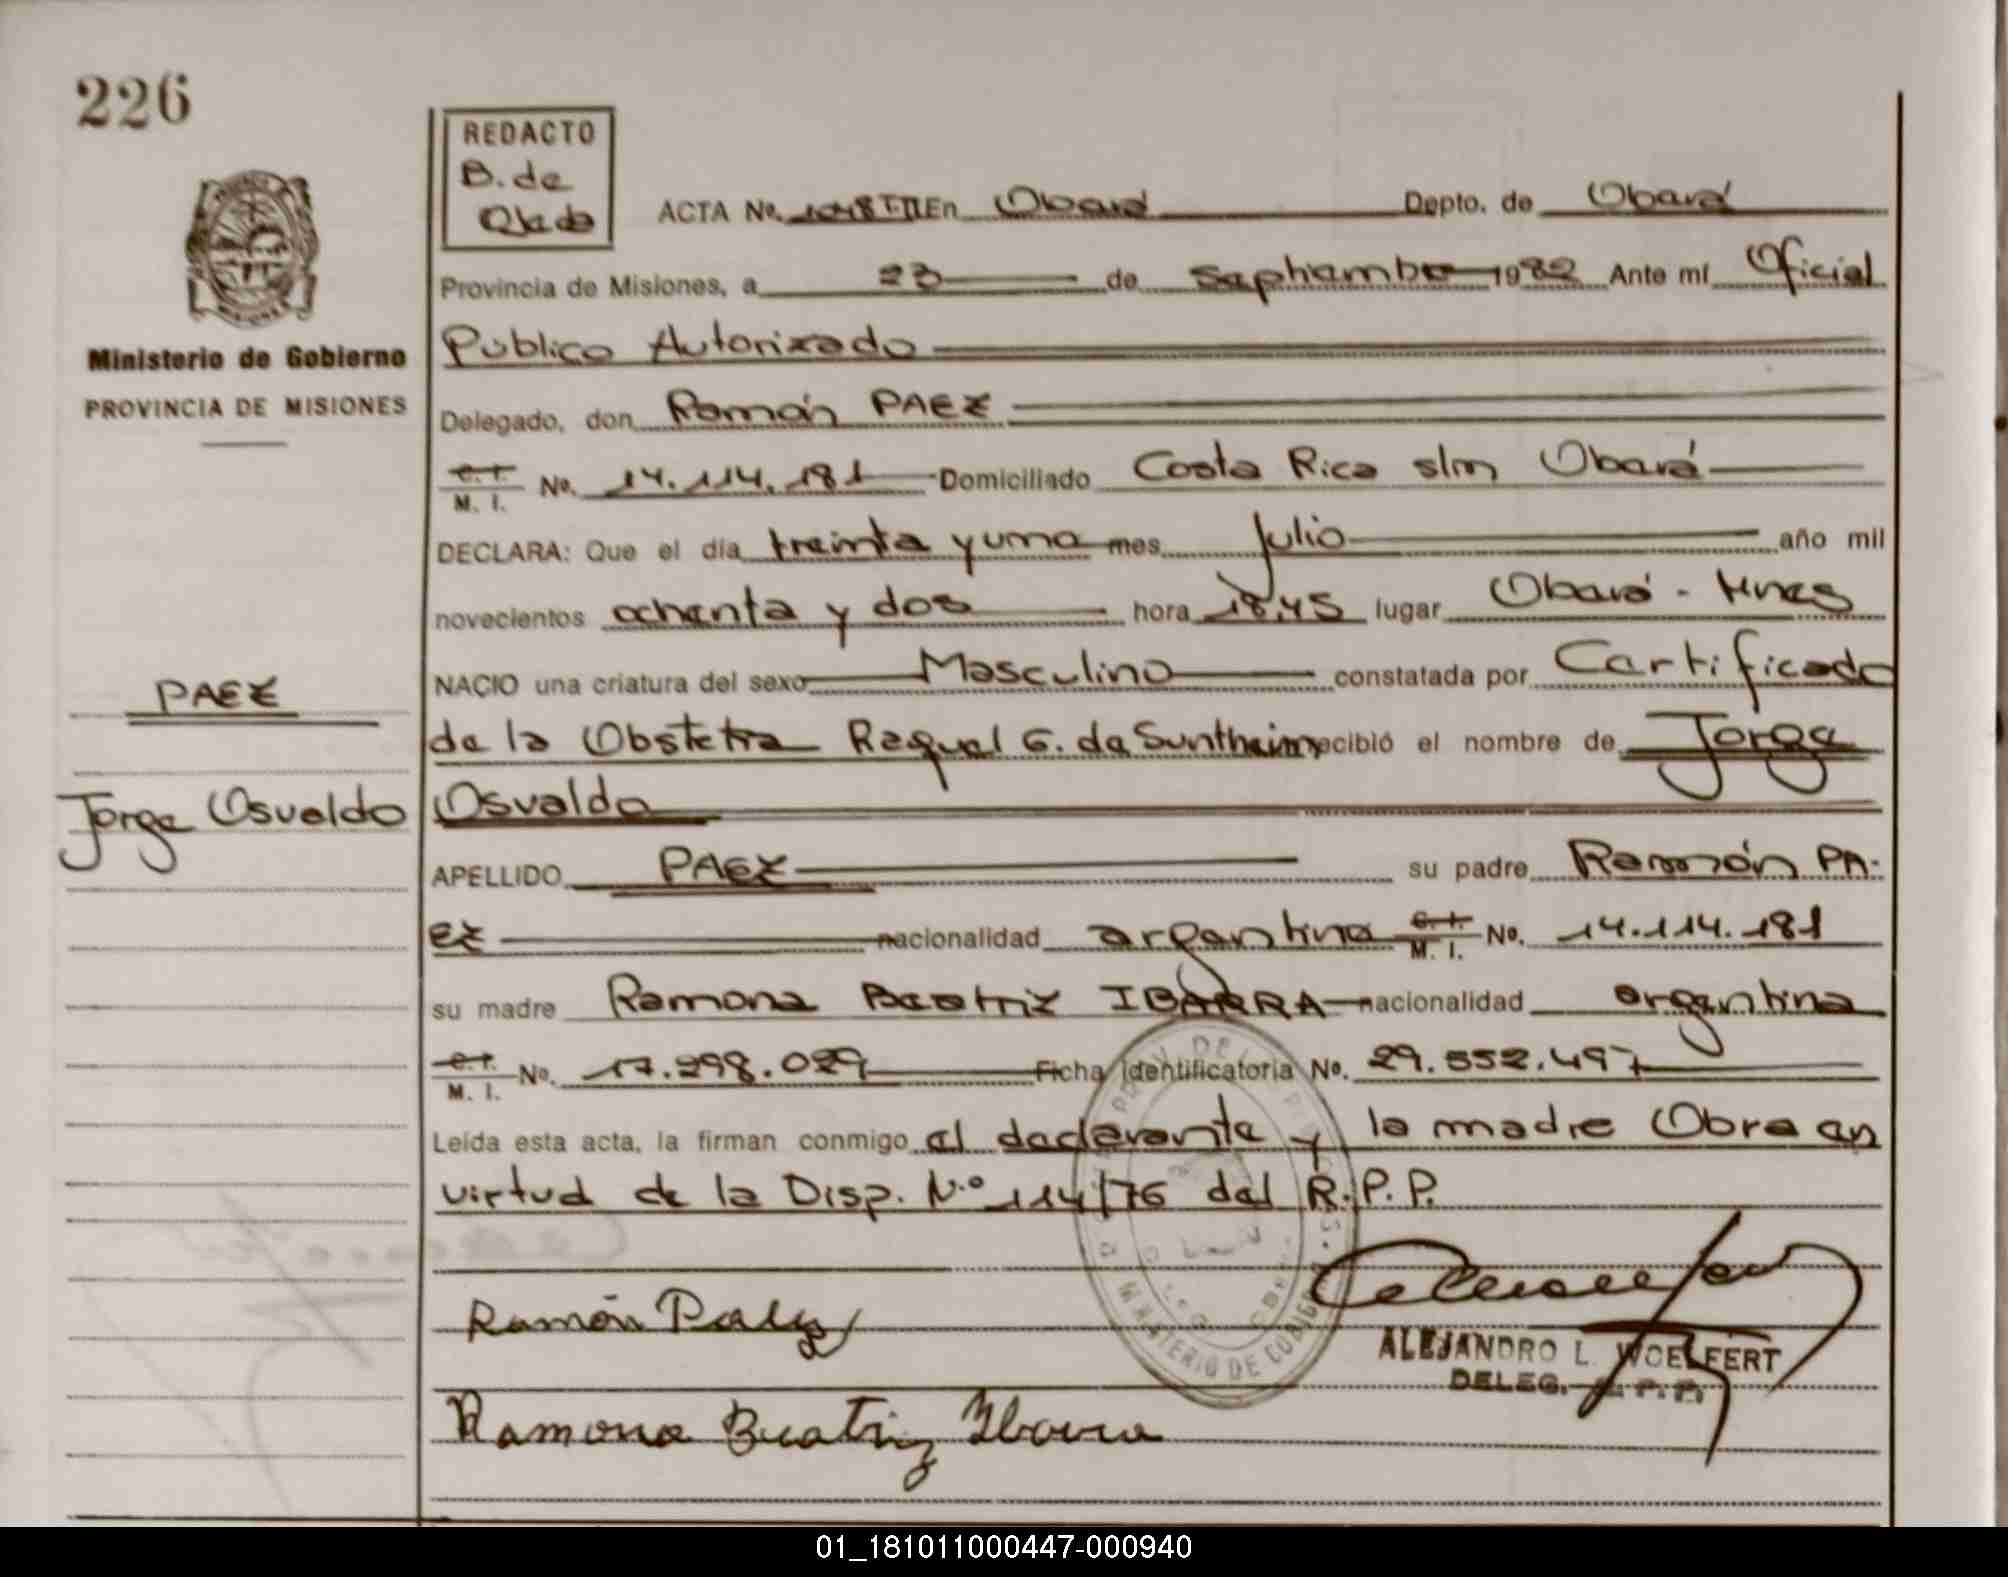 226
REDACTO
B. de
Oledo
ACTA No. 1048 T-II En Oberá Depto. de Oberá
Provincia de Misiones, a 23 de Septiembre 1982 Ante mí Oficial
Ministerio de Gobierno
PROVINCIA DE MISIONES
Público Autorizado
Delegado, don Ramón PAEZ
C. I. M. I. No. 14.114.181 Domiciliado Costa Rica s/n Oberá
DECLARA: Que el día treinta y uno mes Julio año mil
novecientos ochenta y dos hora 18,45 lugar Oberá - Mnes
NACIO una criatura del sexo Masculino constatada por Certificado
de la Obstetra Raquel G. de Suntheim recibió el nombre de Jorge
Osvaldo
PAEZ
Jorge Osvaldo
APELLIDO PAEZ su padre Ramón PA-
EZ nacionalidad argentina C. I. M. I. No. 14.114.181
su madre Ramona Beatriz IBARRA nacionalidad argentina
C. I. M. I. No. 17.298.029 Ficha Identificatoria No. 29.552.497
Leída esta acta, la firman conmigo el declarante y la madre Obra en
virtud de la Disp. N.º 114/76 del R.P.P.
Ramón Paez
ALEJANDRO L. WOELFERT
DELEG. R. P. P.
Ramona Beatriz Ibarra
MINISTERIO DE GOBIERNO
01_181011000447-000940